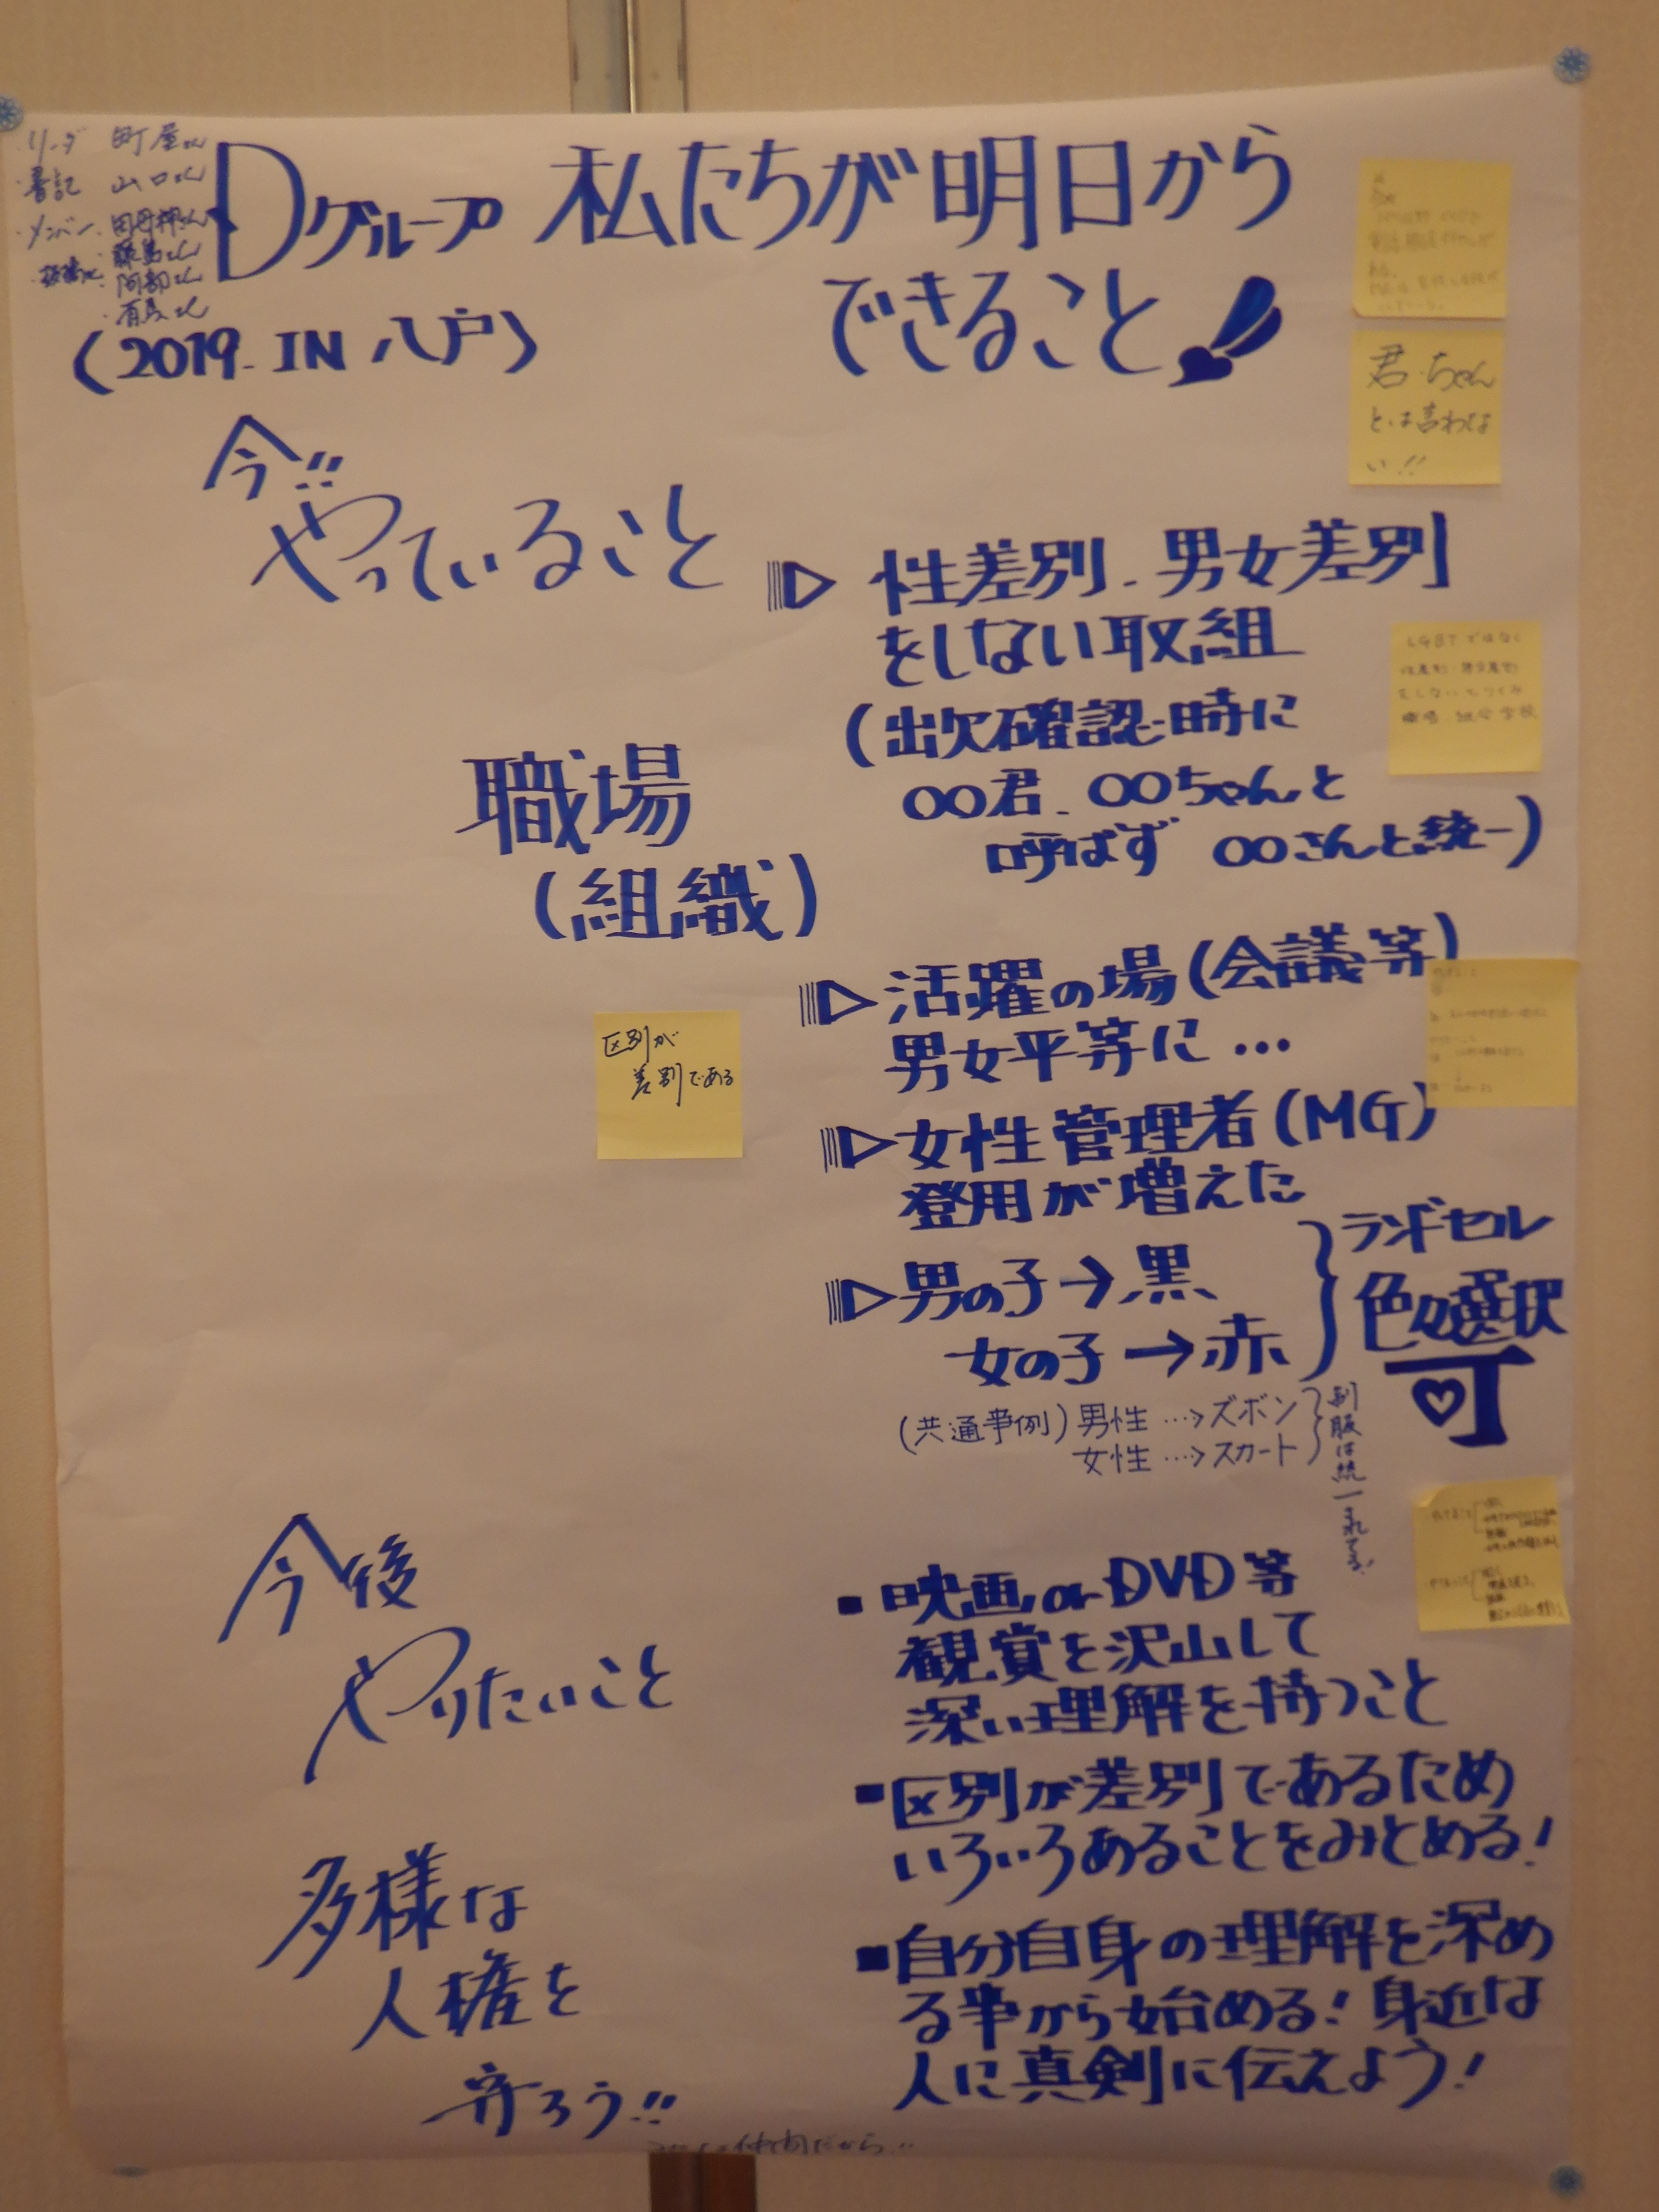 リーダ 町屋さん
書記 山口さん
メンバー
藤島さん
阿部さん
Dグループ 私たちが明日から
できること
(2019. IN 八戸)
君.ちゃん
とは言わな
い!!
今!!
やっていること
職場
(組織)
性差別.男女差別
をしない取組
(出欠確認時に
○○君.○○ちゃんと
呼ばず ○○さんと統一)
LGBTではなく
性差別.男女差別
をしないとりくみ
職場.組合 学校
活躍の場(会議等)
男女平等に…
区別が
差別である
女性管理者(MG)
登用が増えた
男の子→黒
女の子→赤
ランドセル
色々選択
可
(共通事例)男性…>ズボン
女性…>スカート
制服は統一されてる!
今後
やりたいこと
▪映画orDVD等
観賞を沢山して
深い理解を持つこと
▪区別が差別であるため
いろいろあることをみとめる!
▪自分自身の理解を深め
る事から始める!身近な
人に真剣に伝えよう!
多様な
人権を
守ろう!!
仲間だから